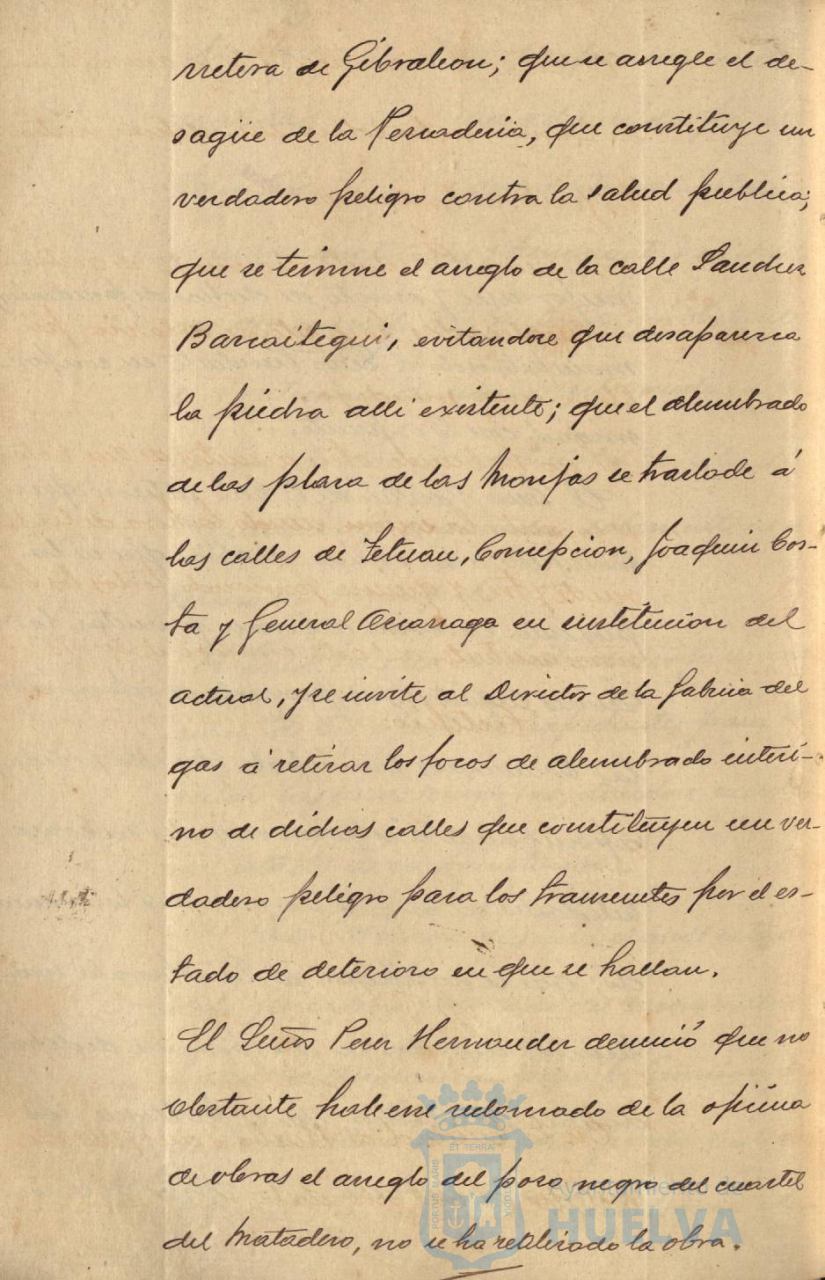 rretera de Gibraleon; que se arregle el de-
sagüe de la Pescaderia, que constituye un
verdadero peligro contra la salud publica;
que se termine el arreglo de la calle Sanchez
Barcaiztegui, evitandose que desaparezca
la piedra alli existente; que el alumbrado
de las plaza de las Monjas se traslade á
las calles de Tetuan, Concepcion, Joaquin Cos-
ta y General Azcarraga en sustitucion del
actual, y se invite al Director de la fabrica del
gas á retirar los focos de alumbrado interi-
no de dichas calles que constituyen un ver-
dadero peligro para los transeuntes por el es-
tado de deterioro en que se hallan.
El Señor Perez Hernandez denunció que no
obstante haberse reclamado de la oficina
de obras el arreglo del pozo negro del cuartel
del Matadero, no se ha realizado la obra.
Ayuntamiento de
HUELVA